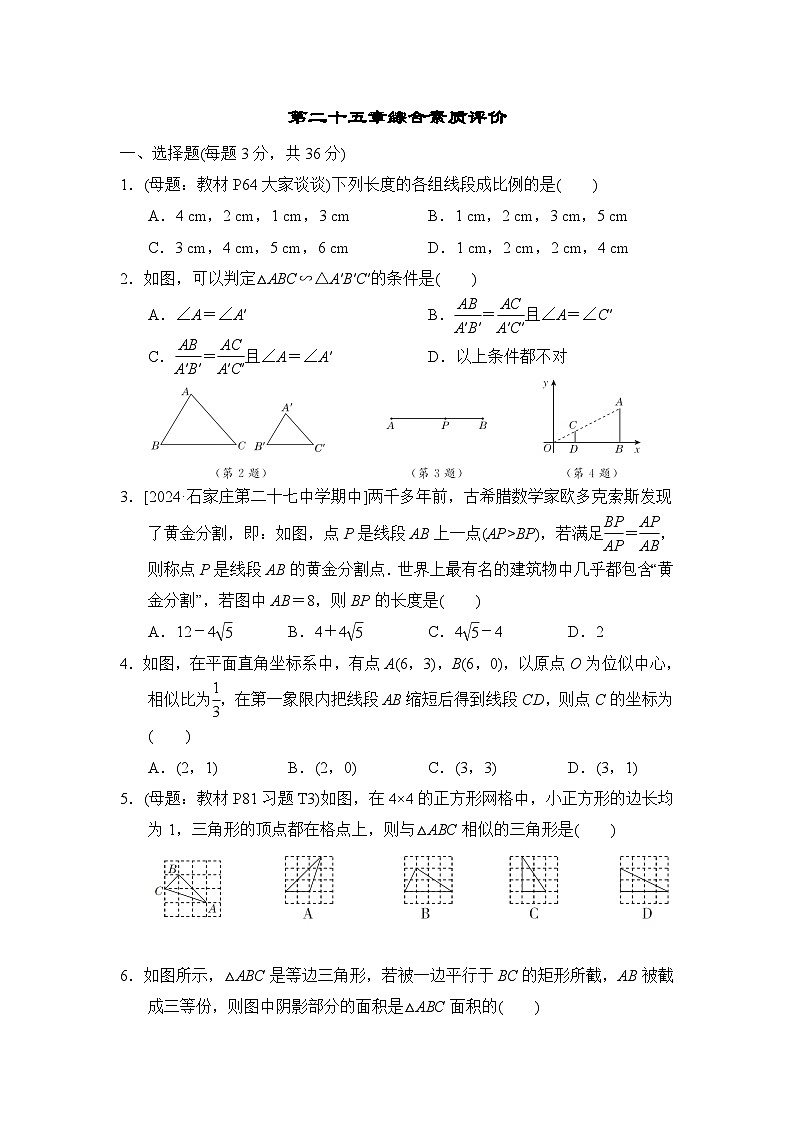 第二十五章综合素质评价
一、选择题(每题3分，共36分)
1．(母题：教材P64大家谈谈)下列长度的各组线段成比例的是(　　)
A．4 cm，2 cm，1 cm，3 cm　B．1 cm，2 cm，3 cm，5 cm
C．3 cm，4 cm，5 cm，6 cm　D．1 cm，2 cm，2 cm，4 cm
2．如图，可以判定△ABC∽△A′B′C′的条件是(　　)
A．∠A＝∠A′　B．AB/A′B′＝AC/A′C′且∠A＝∠C′
C．AB/A′B′＝AC/A′C′且∠A＝∠A′　D．以上条件都不对
A B C A′ B′ C′
A P B
y A C O D B x
(第2题)　(第3题)　(第4题)
3．[2024·石家庄第二十七中学期中]两千多年前，古希腊数学家欧多克索斯发现
了黄金分割，即：如图，点P是线段AB上一点(AP>BP)，若满足BP/AP＝AP/AB，
则称点P是线段AB的黄金分割点．世界上最有名的建筑物中几乎都包含“黄
金分割”，若图中AB＝8，则BP的长度是(　　)
A．12－4√5　B．4＋4√5　C．4√5－4　D．2
4．如图，在平面直角坐标系中，有点A(6，3)，B(6，0)，以原点O为位似中心，
相似比为1/3，在第一象限内把线段AB缩短后得到线段CD，则点C的坐标为
(　　)
A．(2，1)　B．(2，0)　C．(3，3)　D．(3，1)
5．(母题：教材P81习题T3)如图，在4×4的正方形网格中，小正方形的边长均
为1，三角形的顶点都在格点上，则与△ABC相似的三角形是(　　)
B C A
A　B　C　D
6．如图所示，△ABC是等边三角形，若被一边平行于BC的矩形所截，AB被截
成三等份，则图中阴影部分的面积是△ABC面积的(　　)